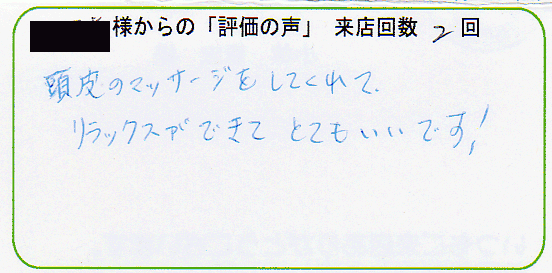 様からの「評価の声」 来店回数 2 回
頭皮のマッサージをしてくれて、
リラックスができて とてもいいです!